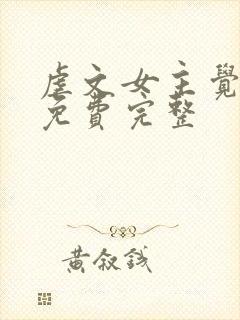 虐文女主覺
免費完整
黃叙錢